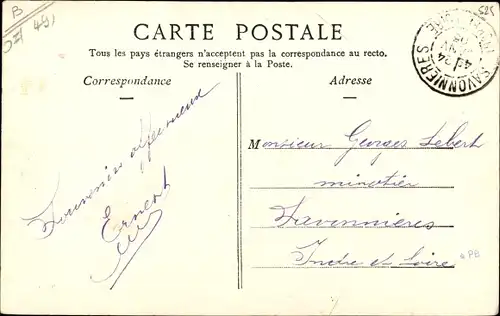 B
525
CARTE POSTALE
Tous les pays étrangers n'acceptent pas la correspondance au recto.
Se renseigner à la Poste.
Correspondance
Adresse
SAVONNIERES
Souvenir affectueux
Ernest
Monsieur Georges Lebert
minotier
Savonnieres
Indre et Loire
PB